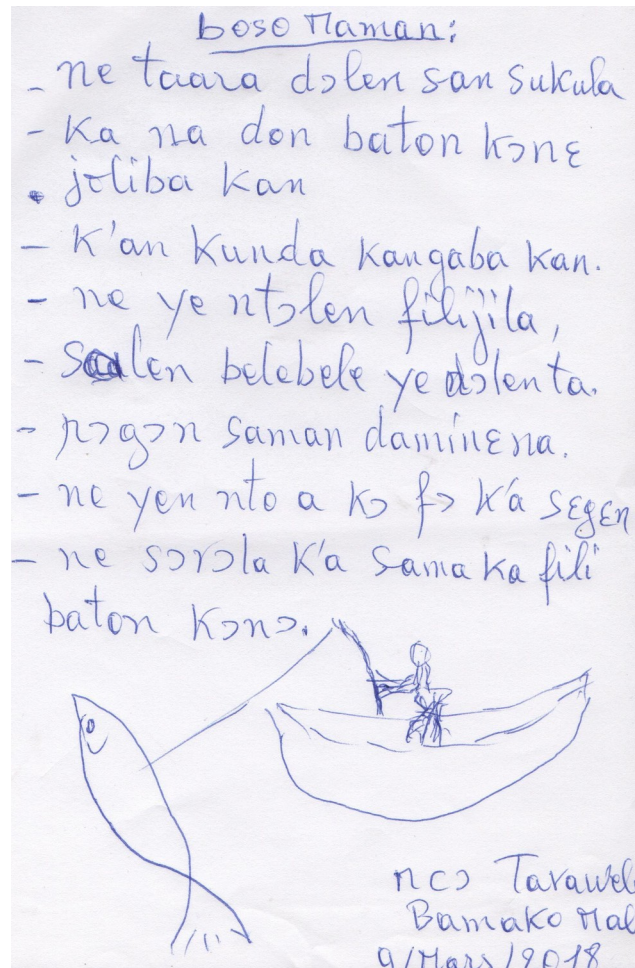 boso Maman:
- ne taara dɔlen san sukula
- ka na don baton kɔnɛ
. joliba kan
- k'an kunda kangaba kan.
- ne ye ntɔlen filijila,
- saalen belebele ye dɔlen ta.
- ɲɔgɔn saman daminɛna.
- ne yen nto a kɔ fɔ k'a sɛgɛn
- ne sɔrɔla k'a sama ka fili
baton kɔnɔ.
ncɔ Tarawel
Bamako Mal
9/Mars/2018